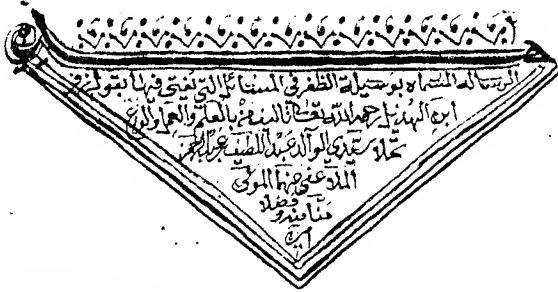 الرسالة المسماة بوسيلة الظفر في المسائل التي يفتى فيها بقول زفر
ابن الهذيل رحمه الله تعالى بالعلم والعمل والورع
سيدي الوالد عبد اللطيف
الملا عفى عنهما المولى
منا منه وفضلا
آمين